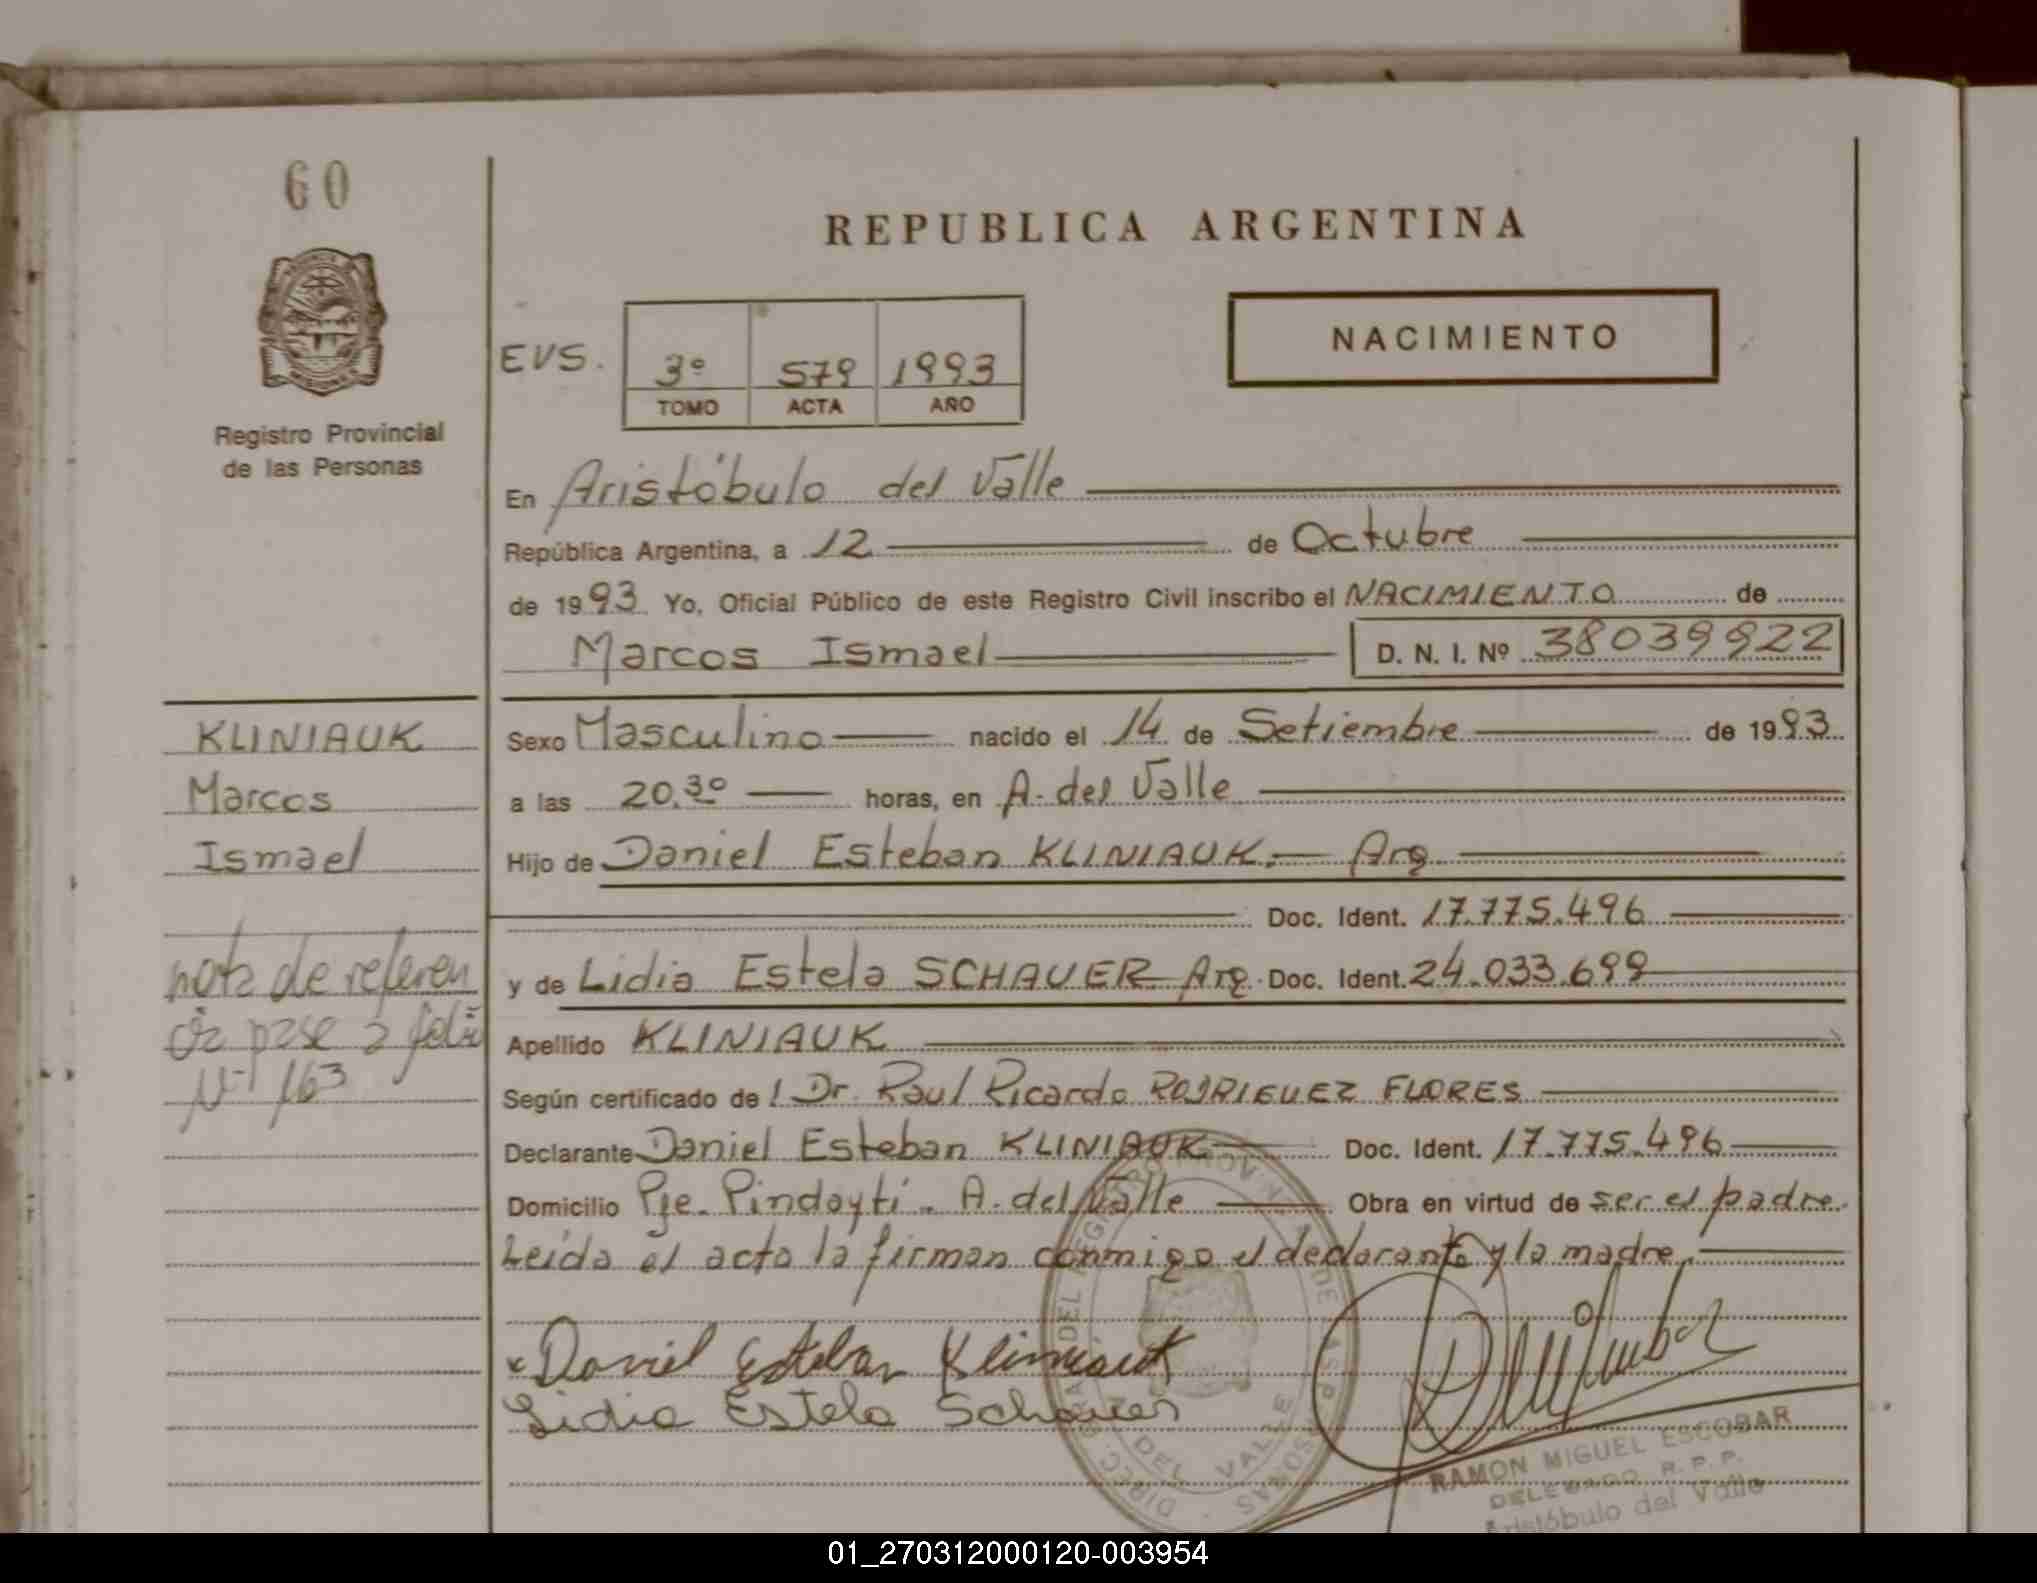 60
REPUBLICA ARGENTINA
NACIMIENTO
EVS. 3º 579 1993
TOMO ACTA AÑO
Registro Provincial
de las Personas
En Aristóbulo del Valle
República Argentina, a 12 de Octubre
de 1993 Yo, Oficial Público de este Registro Civil inscribo el NACIMIENTO de
Marcos Ismael D. N. I. Nº 38039922
KLINIAUK
Marcos
Ismael
nota de referen
cia pase a folio
Nº 163
Sexo Masculino nacido el 14 de Setiembre de 1993
a las 20.30 horas, en A. del Valle
Hijo de Daniel Esteban KLINIAUK.- Arg
Doc. Ident. 17.775.496
y de Lidia Estela SCHAUER Arg. Doc. Ident. 24.033.699
Apellido KLINIAUK
Según certificado del Dr. Raul Ricardo RODRIGUEZ FLORES
Declarante Daniel Esteban KLINIAUK Doc. Ident. 17.775.496
Domicilio Pje. Pindayti - A. del Valle Obra en virtud de ser el padre.
Leída el acta la firman conmigo el declarante y la madre.
Daniel Esteban Kliniauk
Lidia Estela Schauer
RAMON MIGUEL ESCOBAR
DELEGADO R. P. P.
Aristóbulo del Valle
01_270312000120-003954